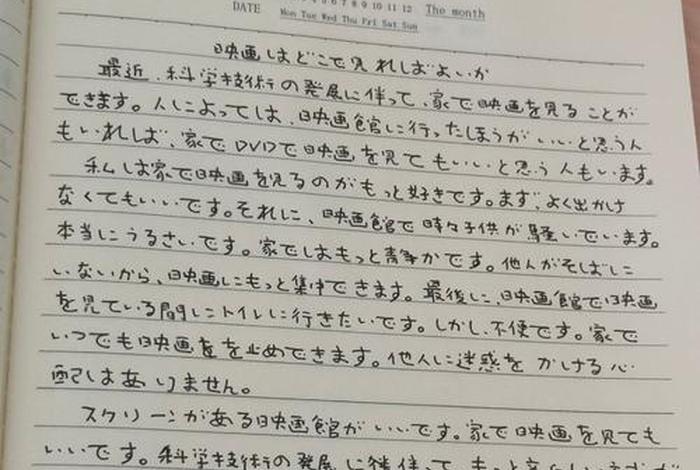 DATE 4 5 6 7 8 9 10 11 12 The month
Mon Tue Wed Thu Fri Sat Sun
映画はどこで見ればよいか
最近、科学技術の発展に伴って、家で映画を見ることが
できます。人によっては、映画館に行ったほうがいいと思う人
もいれば、家でDVDで映画を見てもいいと思う人もいます。
私は家で映画を見るのがもっと好きです。まず、よく出かけ
なくてもいいです。それに、映画館で時々子供が騒いでいます。
本当にうるさいです。家ではもっと静かです。他人がそばに
いないから、映画にもっと集中できます。最後に、映画館で映画
を見ている間にトイレに行きたいです。しかし、不便です。家で
いつでも映画をを止めできます。他人に迷惑をかける心
配はありません。
スクリーンがある映画館がいいです。家で映画を見ても
いいです。科学技術の発展に伴って、もっと